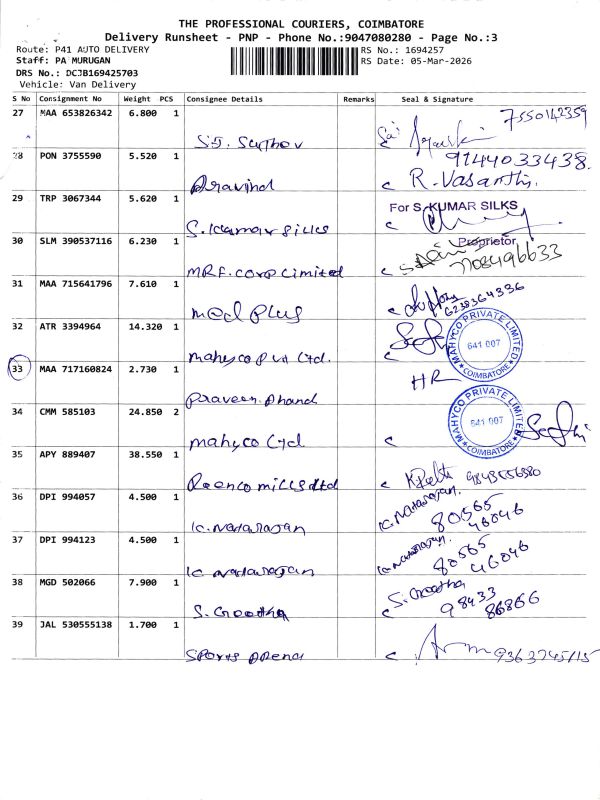 THE PROFESSIONAL COURIERS, COIMBATORE
Delivery Runsheet - PNP - Phone No.:9047080280 - Page No.:3
Route: P41 AUTO DELIVERY
RS No.: 1694257
Staff: PA MURUGAN
RS Date: 05-Mar-2026
DRS No.: DCJB169425703
Vehicle: Van Delivery
S No Consignment No Weight PCS Consignee Details Remarks Seal & Signature
27 MAA 653826342 6.800 1
7550142359
28 PON 3755590 5.520 1
9144033438.
Aravind
R. Vasanthi.
29 TRP 3067344 5.620 1
For S. KUMAR SILKS
S. Kumar Silks
Proprietor
30 SLM 390537116 6.230 1
MRF. Corp Limited
31 MAA 715641796 7.610 1
6238364336
Med Plus
32 ATR 3394964 14.320 1
MAHYCO PRIVATE LIMITED
641 007
COIMBATORE
Mahyco Pvt Ltd.
33 MAA 717160824 2.730 1
HR
34 CMM 585103 24.850 2
MAHYCO PRIVATE LIMITED
641 007
COIMBATORE
Mahyco Ltd
35 APY 889407 38.550 1
9843556980
36 DPI 994057 4.500 1
K. Natarajan.
80565
46046
K. Natarajan
37 DPI 994123 4.500 1
K. Natarajan.
80565
46046
K. Natarajan
38 MGD 502066 7.900 1
S. Geetha
98433
86866
S. Geetha
39 JAL 530555138 1.700 1
Sports Arena
9363745115